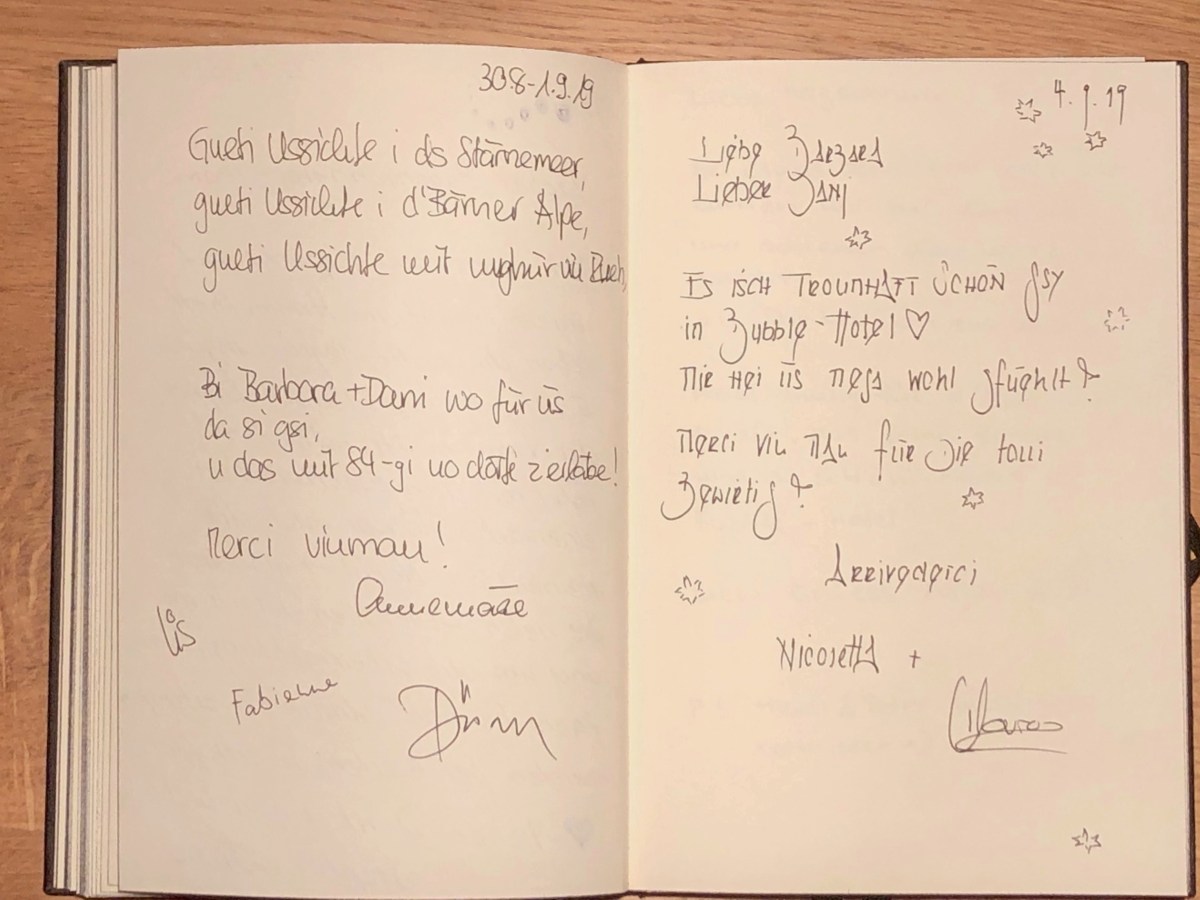 30.8-1.9.19
Gueti Ussichte i ds Stärnemeer,
gueti Ussichte i d'Bärner Alpe,
gueti Ussichte mit
Bi Barbara + Dani wo für üs
da si gsi,
u das mit 84-gi no dörfe z'erläbe!
Merci viumau!
Annemarie
Üs
Fabienne
4.9.19
Liebe Barbara
Lieber Dani
Es isch troumhaft schön gsy
in Bubble-Hotel ♡
Mir hei üs mega wohl gfüehlt!
Merci viu mau für die toui
Bewirtig!
Arrivederci
Nicoletta +